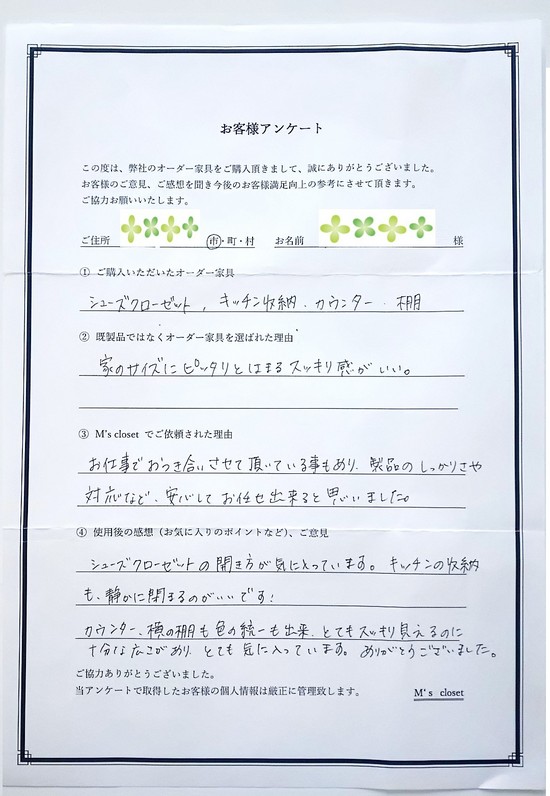 お客様アンケート
この度は、弊社のオーダー家具をご購入頂きまして、誠にありがとうございました。
お客様のご意見、ご感想を聞き今後のお客様満足向上の参考にさせて頂きます。
ご協力お願いいたします。
ご住所 市・町・村 お名前 様
① ご購入いただいたオーダー家具
シューズクローゼット, キッチン収納・カウンター・棚
② 既製品ではなくオーダー家具を選ばれた理由
家のサイズにピッタリとはまるスッキリ感がいい。
③ M's closet でご依頼された理由
お仕事でおつき合いさせて頂いている事もあり、製品のしっかりさや
対応など、安心してお任せ出来ると思いました。
④ 使用後の感想（お気に入りのポイントなど）、ご意見
シューズクローゼットの開き方が気に入っています。キッチンの収納
も、静かに閉まるのがいいです!
カウンター、横の棚も色の統一も出来、とてもスッキリ見えるのに
十分な広さがあり、とても気に入っています。ありがとうございました。
ご協力ありがとうございました。
当アンケートで取得したお客様の個人情報は厳正に管理致します。
M's closet